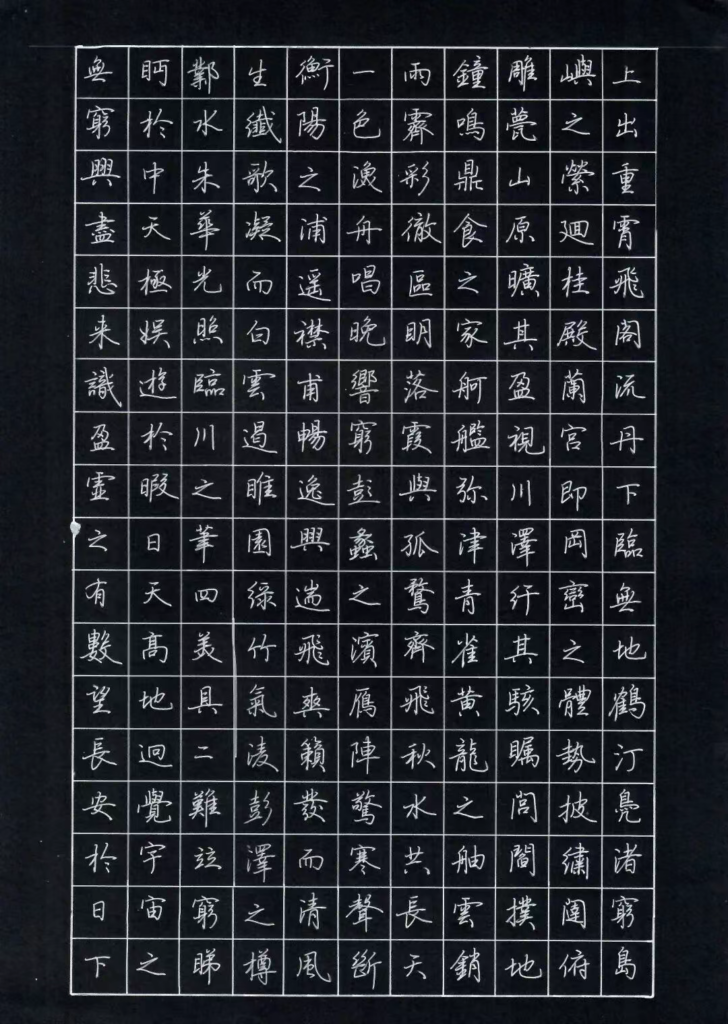 上出重霄飛閣流丹下臨無地鶴汀鳧渚窮島
嶼之縈迴桂殿蘭宮即岡巒之體勢披繡闥俯
雕甍山原曠其盈視川澤紆其駭矚閭閻撲地
鐘鳴鼎食之家舸艦弥津青雀黃龍之舳雲銷
雨霽彩徹區明落霞與孤鶩齊飛秋水共長天
一色漁舟唱晚響窮彭蠡之濱雁陣驚寒聲斷
衡陽之浦遥襟甫暢逸興遄飛爽籟發而清風
生纖歌凝而白雲遏睢園綠竹氣凌彭澤之樽
鄴水朱華光照臨川之筆四美具二難竝窮睇
眄於中天極娛遊於暇日天高地迥覺宇宙之
無窮興盡悲来識盈虛之有數望長安於日下